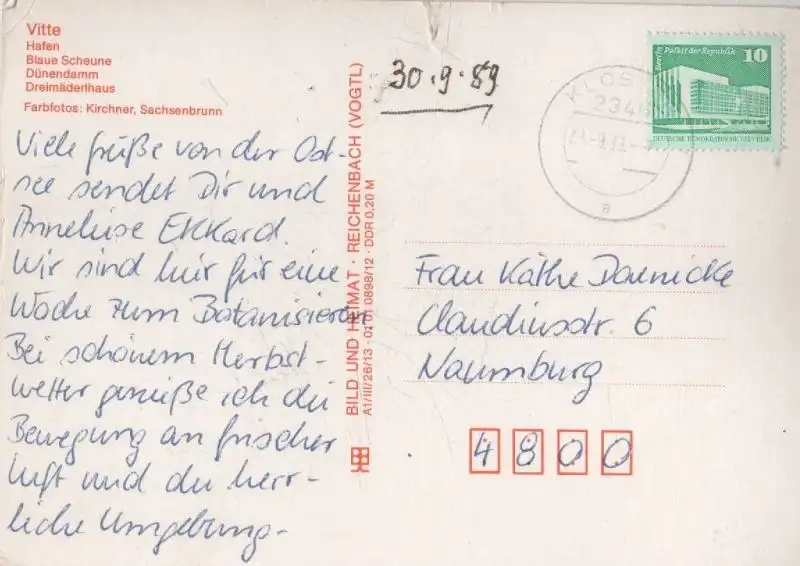 Vitte
Hafen
Blaue Scheune
Dünendamm
Dreimäderlhaus
Farbfotos: Kirchner, Sachsenbrunn
Viele Grüße von der Ost-
see sendet Dir und
Anneliese Ekkard.
Wir sind hier für eine
Woche zum Botanisieren
Bei schönem Herbst-
wetter genieße ich die
Bewegung an frischer
Luft und die herr-
liche Umgebung.
BILD UND HEIMAT · REICHENBACH (VOGTL)
A1/III/26/13 · 01 01 0898/12 · DDR 0,20 M
30.9.89
KLOS
234
a
Berlin Palast der Republik
10
DEUTSCHE DEMOKRATISCHE REPUBLIK
Frau Käthe Daenicke
Claudiusstr. 6
Naumburg
4800